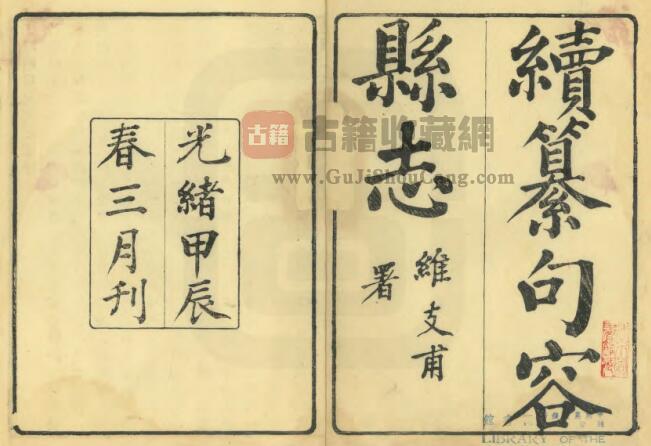 續纂句容
縣志
維支甫
署
光緒甲辰
春三月刊
古籍
古籍收藏網
www.GuJiShouCang.com
館
LIBRARY OF THE